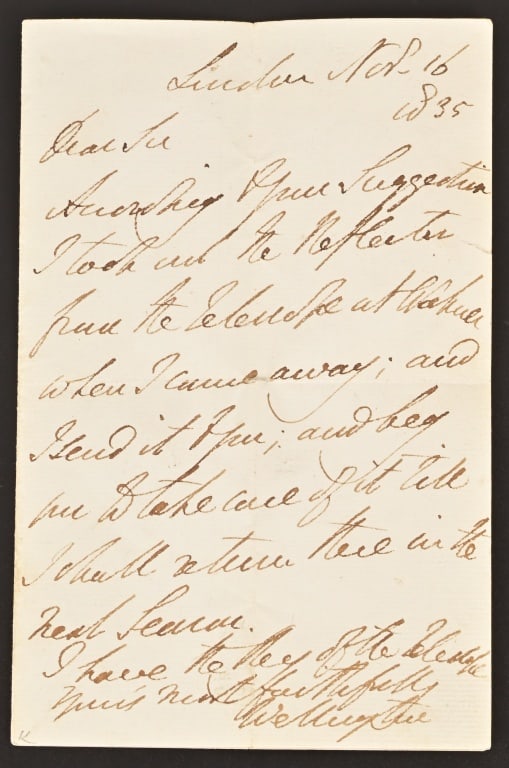 London Nov. 16
1835
Dear Sir
According to your Suggestion
I took out the Reflector
from the Telescope at Walmer
when I came away; and
I send it to you; and beg
you to take care of it till
I shall return there in the
next Season.
I have the Key of the Telescope
Yours most faithfully
Wellington